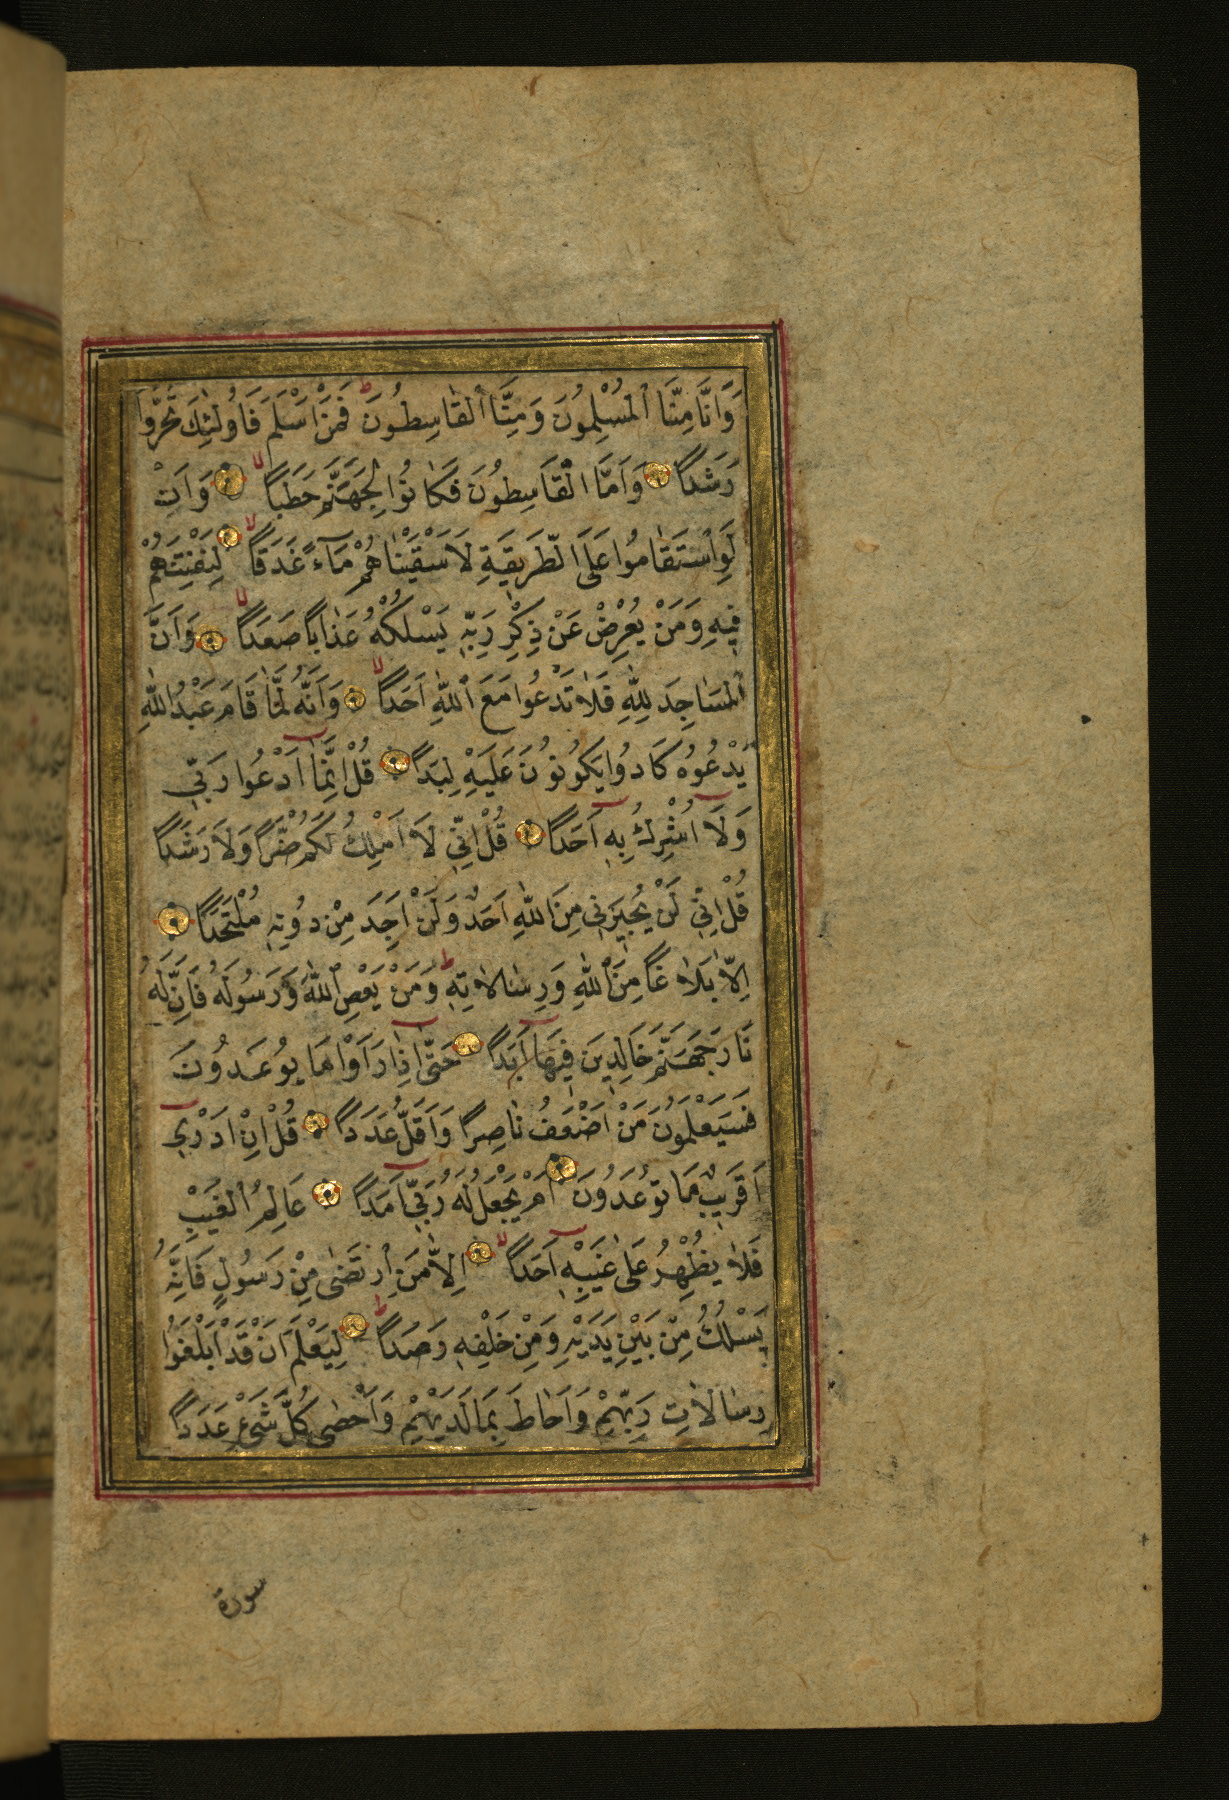 وَاَنَّا مِنَّا الْمُسْلِمُونَ وَمِنَّا الْقَاسِطُونَ ط فَمَنْ اَسْلَمَ فَاُولٰئِكَ تَحَرَّوْا
رَشَدًا وَاَمَّا الْقَاسِطُونَ فَكَانُوا لِجَهَنَّمَ حَطَبًا لا وَاَنْ
لَوِ اسْتَقَامُوا عَلَى الطَّرِيقَةِ لَاَسْقَيْنَاهُمْ مَآءً غَدَقًا لا لِنَفْتِنَهُمْ
فِيهِ وَمَنْ يُعْرِضْ عَنْ ذِكْرِ رَبِّهِ يَسْلُكْهُ عَذَابًا صَعَدًا لا وَاَنَّ
الْمَسَاجِدَ لِلّٰهِ فَلَا تَدْعُوا مَعَ اللّٰهِ اَحَدًا لا وَاَنَّهُ لَمَّا قَامَ عَبْدُ اللّٰهِ
يَدْعُوهُ كَادُوا يَكُونُونَ عَلَيْهِ لِبَدًا قُلْ اِنَّمَا اَدْعُوا رَبِّي
وَلَا اُشْرِكُ بِهِ اَحَدًا قُلْ اِنِّي لَا اَمْلِكُ لَكُمْ ضَرًّا وَلَا رَشَدًا
قُلْ اِنِّي لَنْ يُجِيرَنِي مِنَ اللّٰهِ اَحَدٌ وَلَنْ اَجِدَ مِنْ دُونِهِ مُلْتَحَدًا
اِلَّا بَلَاغًا مِنَ اللّٰهِ وَرِسَالَاتِهِ ط وَمَنْ يَعْصِ اللّٰهَ وَرَسُولَهُ فَاِنَّ لَهُ
نَارَ جَهَنَّمَ خَالِدِينَ فِيهَا اَبَدًا حَتّٰى اِذَا رَاَوْا مَا يُوعَدُونَ
فَسَيَعْلَمُونَ مَنْ اَضْعَفُ نَاصِرًا وَاَقَلُّ عَدَدًا قُلْ اِنْ اَدْرِي
اَقَرِيبٌ مَا تُوعَدُونَ اَمْ يَجْعَلُ لَهُ رَبِّي اَمَدًا عَالِمُ الْغَيْبِ
فَلَا يُظْهِرُ عَلٰى غَيْبِهِ اَحَدًا لا اِلَّا مَنِ ارْتَضٰى مِنْ رَسُولٍ فَاِنَّهُ
يَسْلُكُ مِنْ بَيْنِ يَدَيْهِ وَمِنْ خَلْفِهِ رَصَدًا ط لِيَعْلَمَ اَنْ قَدْ اَبْلَغُوا
رِسَالَاتِ رَبِّهِمْ وَاَحَاطَ بِمَا لَدَيْهِمْ وَاَحْصٰى كُلَّ شَيْءٍ عَدَدًا
سورة